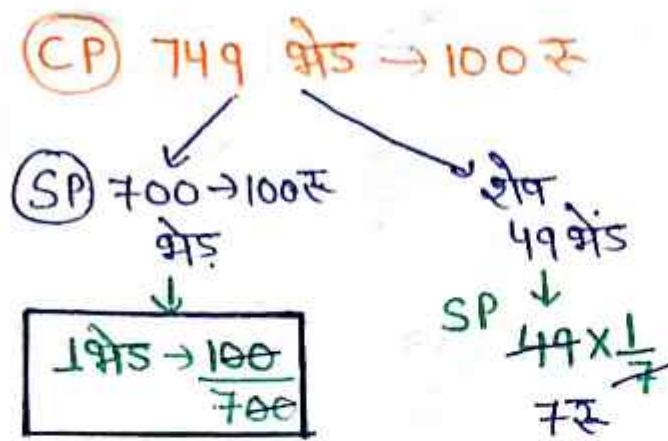 CP 749 भेड → 100 रु
SP 700 → 100रु
भेड़
1भेड → 100/700
शेष
49 भेंड
SP 49 × 1/7
7रु